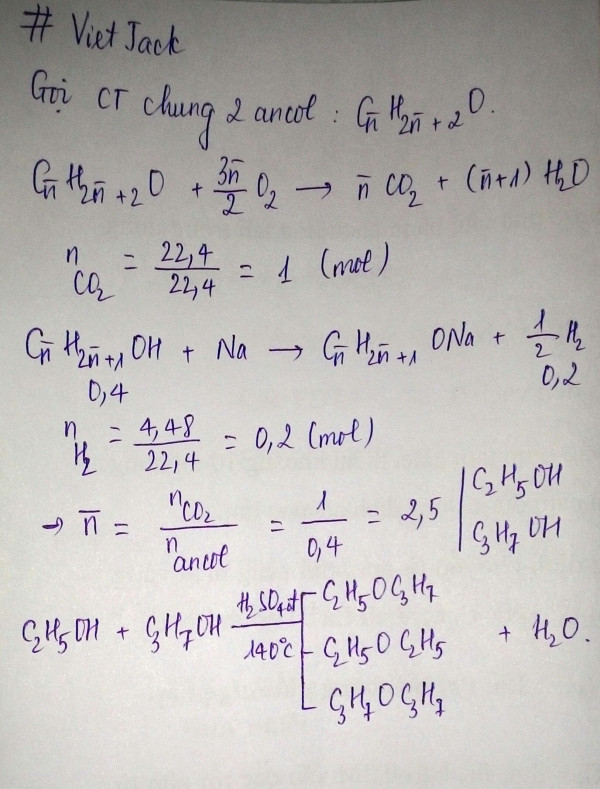 # VietJack
Gọi CT chung 2 ancol : Cn̄H2n̄+2O.
Cn̄H2n̄+2O + 3n̄/2 O2 → n̄ CO2 + (n̄+1) H2O
nCO2 = 22,4/22,4 = 1 (mol)
Cn̄H2n̄+1OH + Na → Cn̄H2n̄+1ONa + 1/2 H2
0,4 0,2
nH2 = 4,48/22,4 = 0,2 (mol)
→ n̄ = nCO2/nancol = 1/0,4 = 2,5 | C2H5OH
C3H7OH
C2H5OH + C3H7OH H2SO4đ 140°C C2H5OC3H7
C2H5OC2H5 + H2O.
C3H7OC3H7